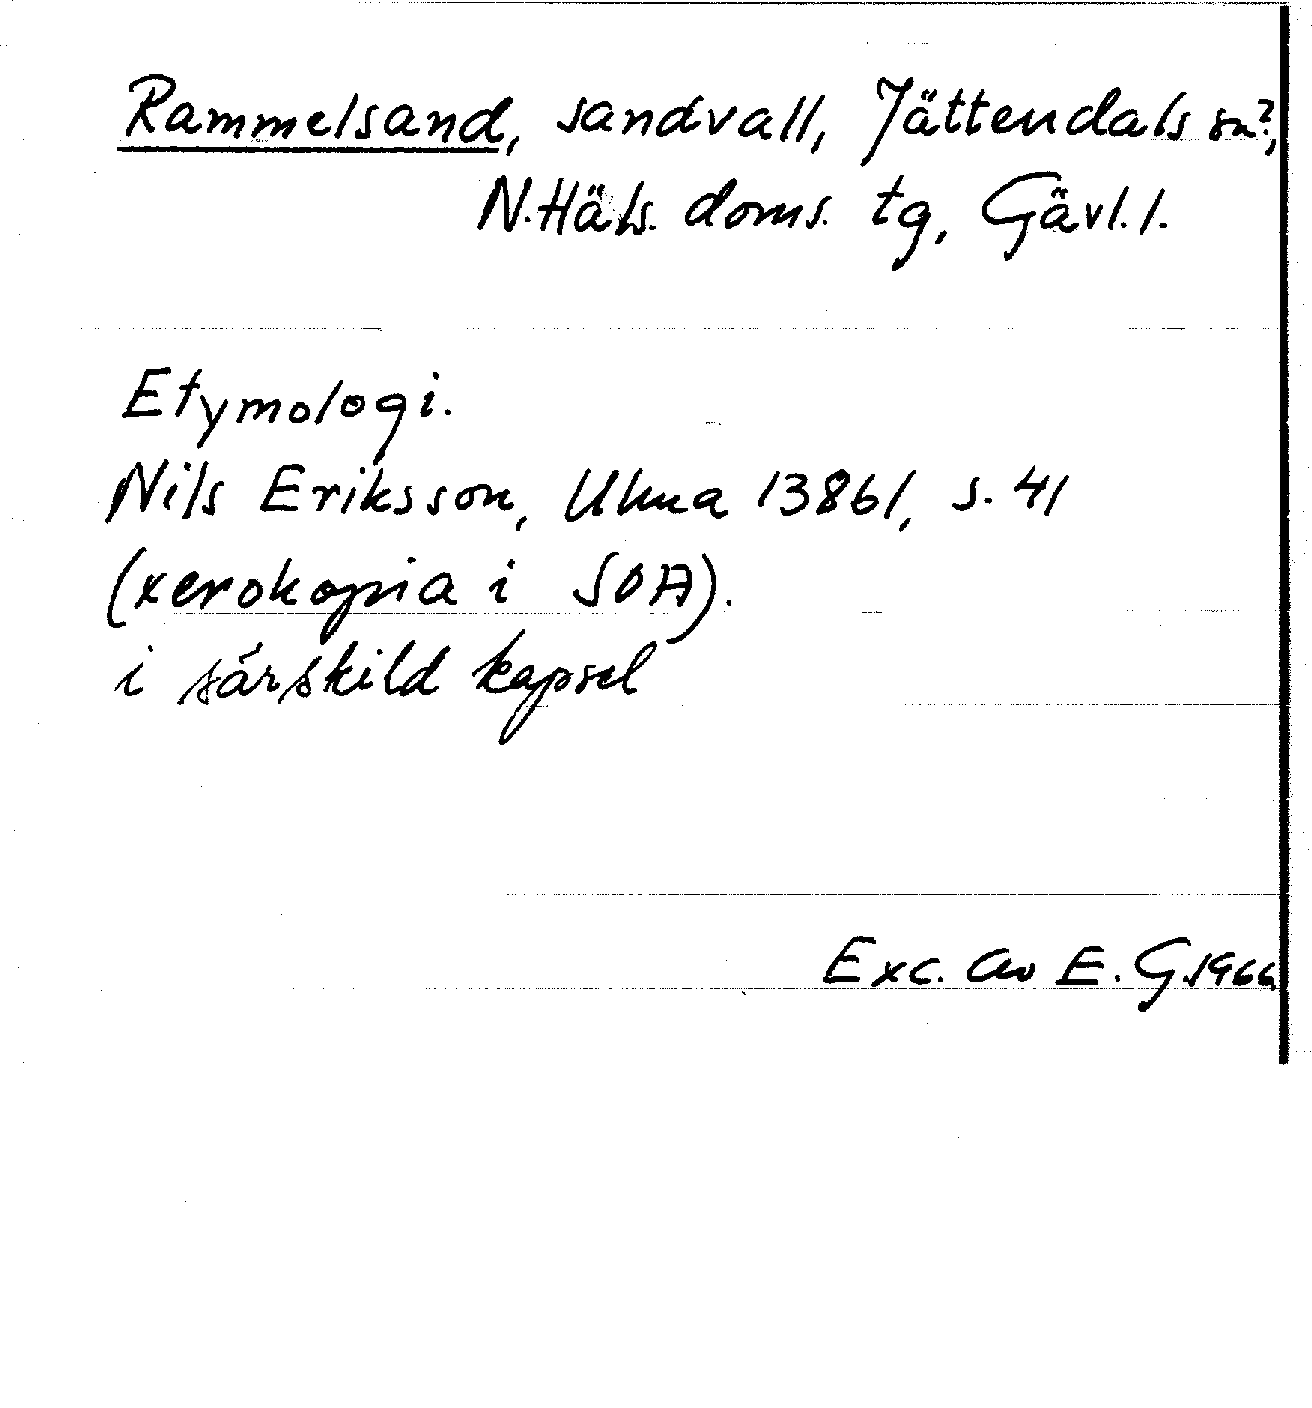 Rammelsand, sandvall, Jättendals sn?,
N. Häls. doms. tg, Gävl. l.
Etymologi.
Nils Eriksson, Ulma 13861, s. 41
(xerokopia i SOA).
i särskild kapsel
Exc. av E. G. 1966